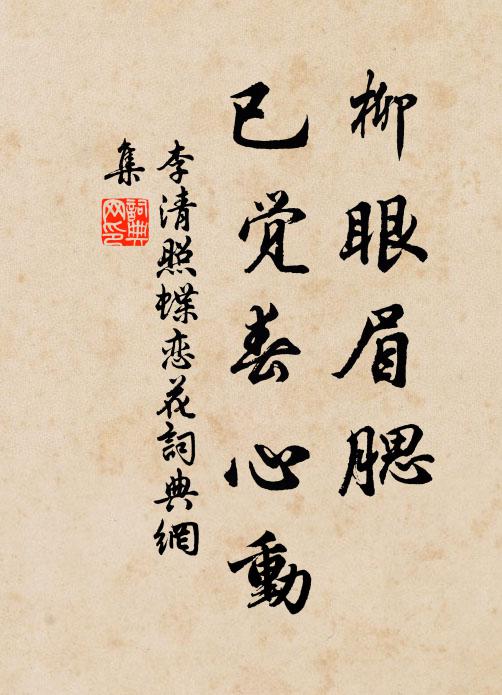 柳眼眉腮
已觉春心動
李清照蝶恋花詞典網
集
詞典網印